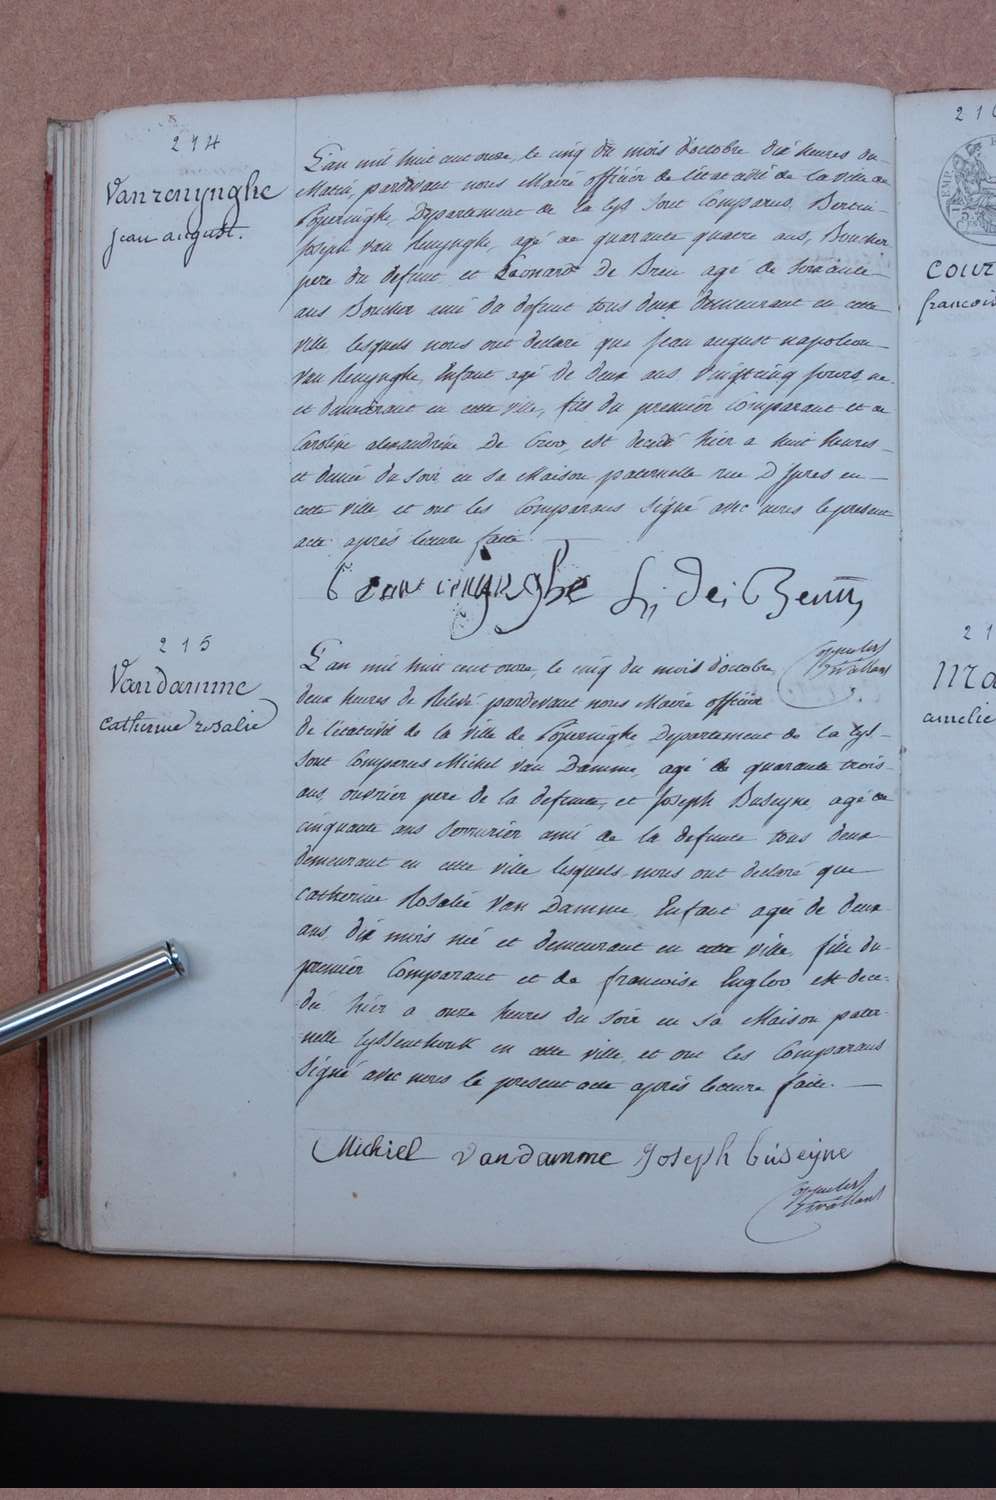 214
Vanrenynghe
jean august.
L'an mil huit cent onze, le cinq du mois d'octobre dix heures du
Matin, pardevant nous Maire officier de l'état civil de la ville de
Poperinghe, Departement de la Lys sont Comparus, Bertin
Joseph Van Renynghe, agé de quarante quatre ans, Boucher
pere du defunt et Leonard De Breu agé de soixante
ans Boucher ami du defunt tous deux demeurant en cette
ville, lesquels nous ont declaré que jean august napoleon
Van Renynghe, Enfant agé de deux ans vingt cinq jours, né
et demeurant en cette ville, fils du premier Comparant et de
Caroline alexandrine De Croo, est decedé hier a huit heures
et demie du soir, en sa Maison paternelle rue D'Ypres en
cette ville et ont les Comparans signé avec nous le present
acte après lecture faite.
B vanrenynghe L: de: Breuu
215
Vandamme
Catherine rosalie
L'an mil huit cent onze, le cinq du mois d'octobre,
deux heures de Relevé pardevant nous Maire officier
de l'état civil de la ville de Poperinghe Departement de la Lys
sont Comparus Michel Van Damme, agé de quarante trois
ans, ouvrier pere de la defunte, et Joseph Buseyne agé de
cinquante ans serrurier ami de la defunte tous deux
demeurant en cette ville lesquels nous ont declaré que
Catherine Rosalie Van Damme, Enfant agée de deux
ans, dix mois né et demeurant en cette ville, fille du
premier Comparant et de francoise Engloo est dece-
dé hier a onze heures du soir en sa Maison pater-
nelle Lyssenthouk en cette ville, et ont les Comparans
signé avec nous le present acte après lecture faite.
Michiel vandamme Joseph büseijne
21
francois
21
Ma
amelie